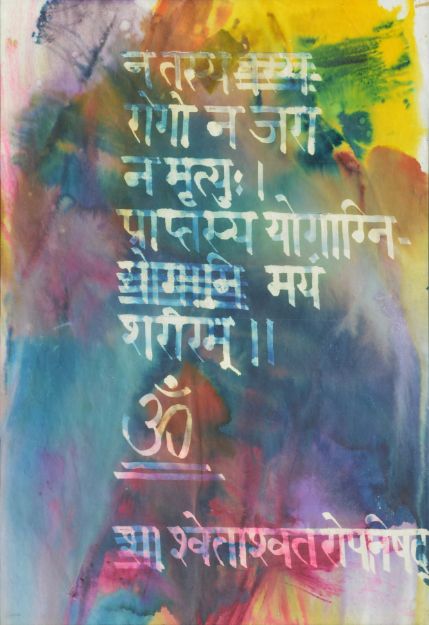 न तस्य
रोगो न जरा
न मृत्युः ।
प्राप्तस्य योगाग्नि-
मयं
शरीरम् ॥
ॐ
श्वेताश्वतरोपनिषद्